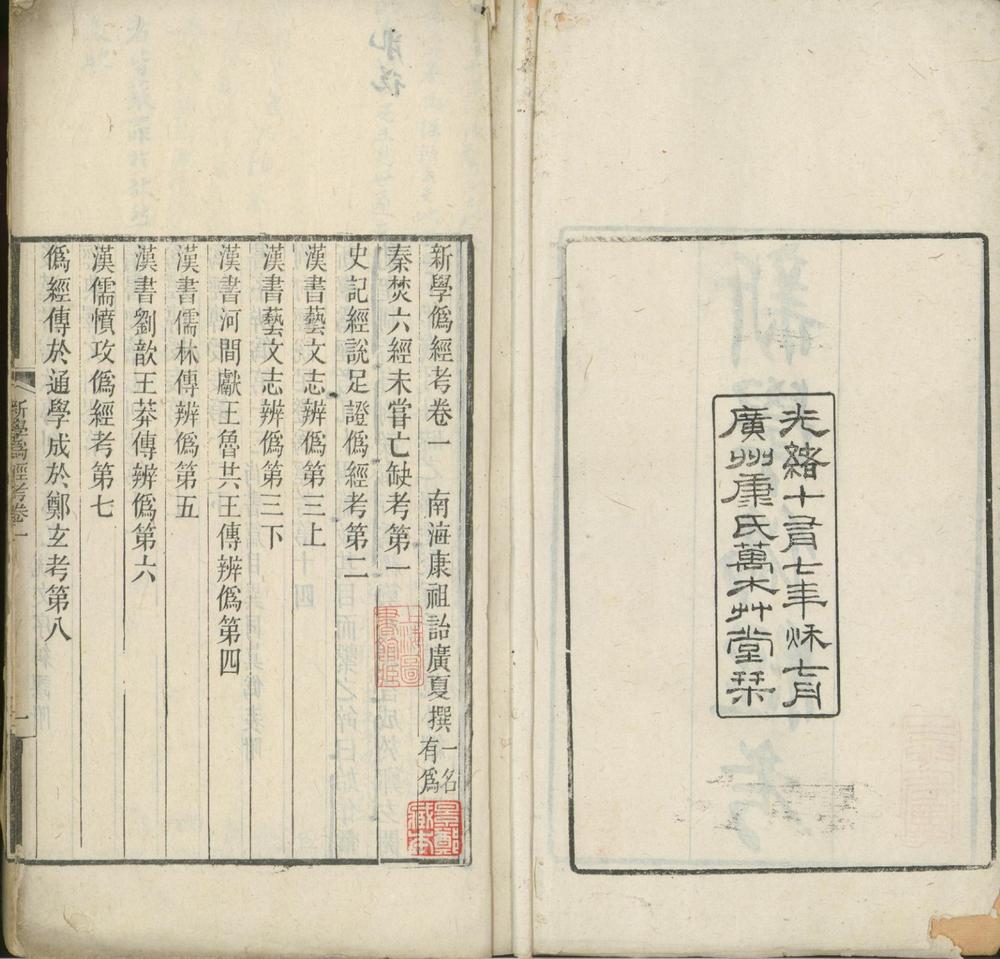 光緒十有七年秌七月
廣州康氏萬木艸堂栞
新學僞經考卷一 南海康祖詒廣夏撰 一名有爲
秦焚六經未嘗亡缺考第一
史記經說足證僞經考第二
漢書藝文志辨僞第三上
漢書藝文志辨僞第三下
漢書河間獻王魯共王傳辨僞第四
漢書儒林傳辨僞第五
漢書劉歆王莽傳辨僞第六
漢儒憤攻僞經考第七
僞經傳於通學成於鄭玄考第八
新學僞經考卷一
一
景鄭藏本